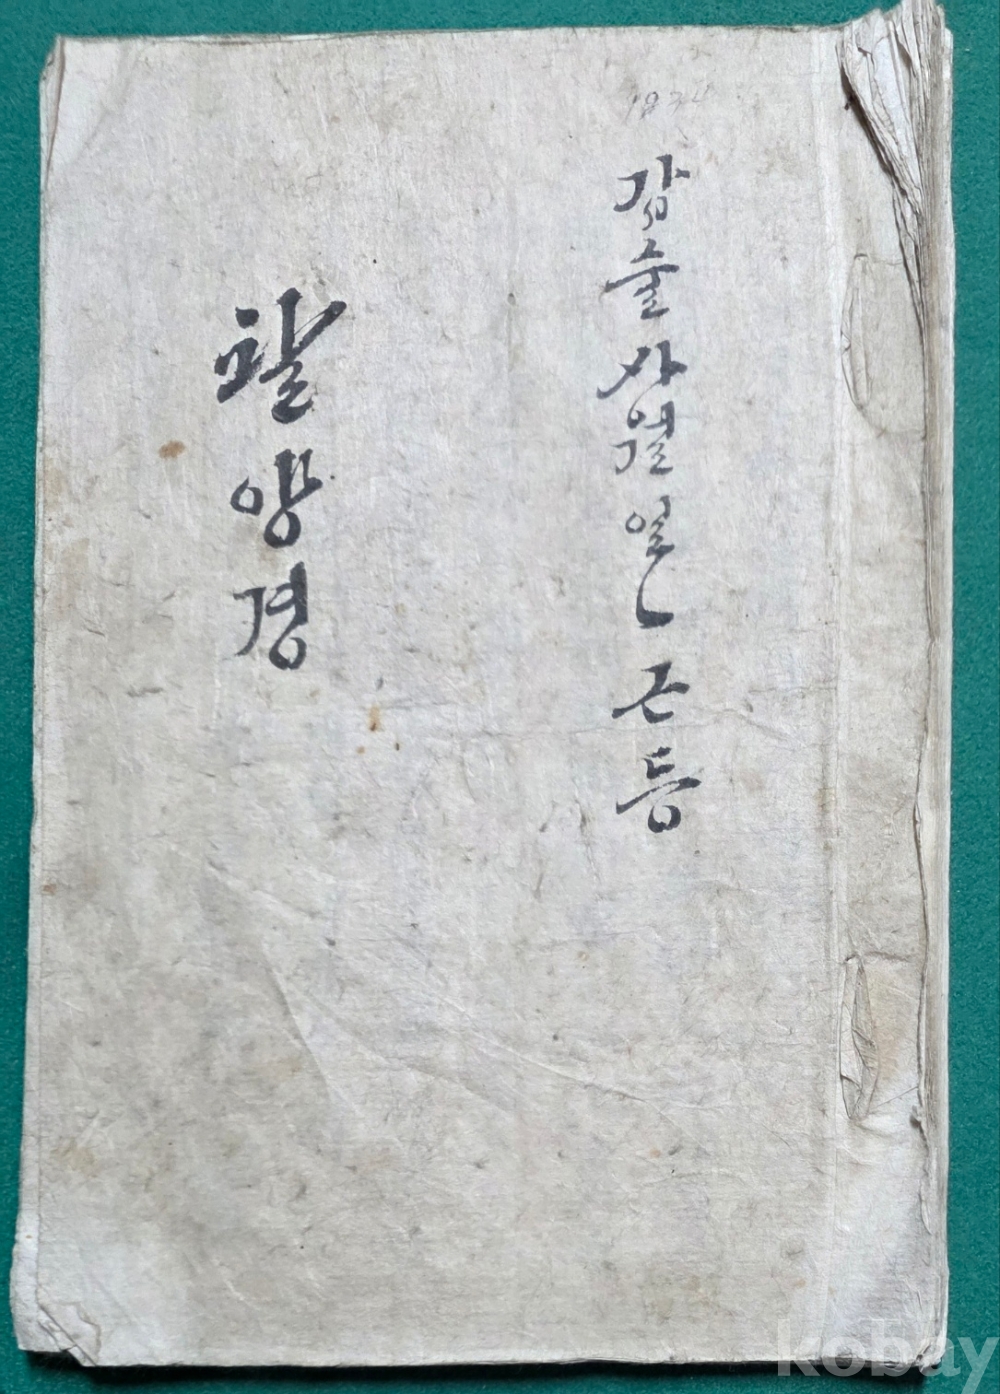 갑술사월일근등
팔양경
kobay